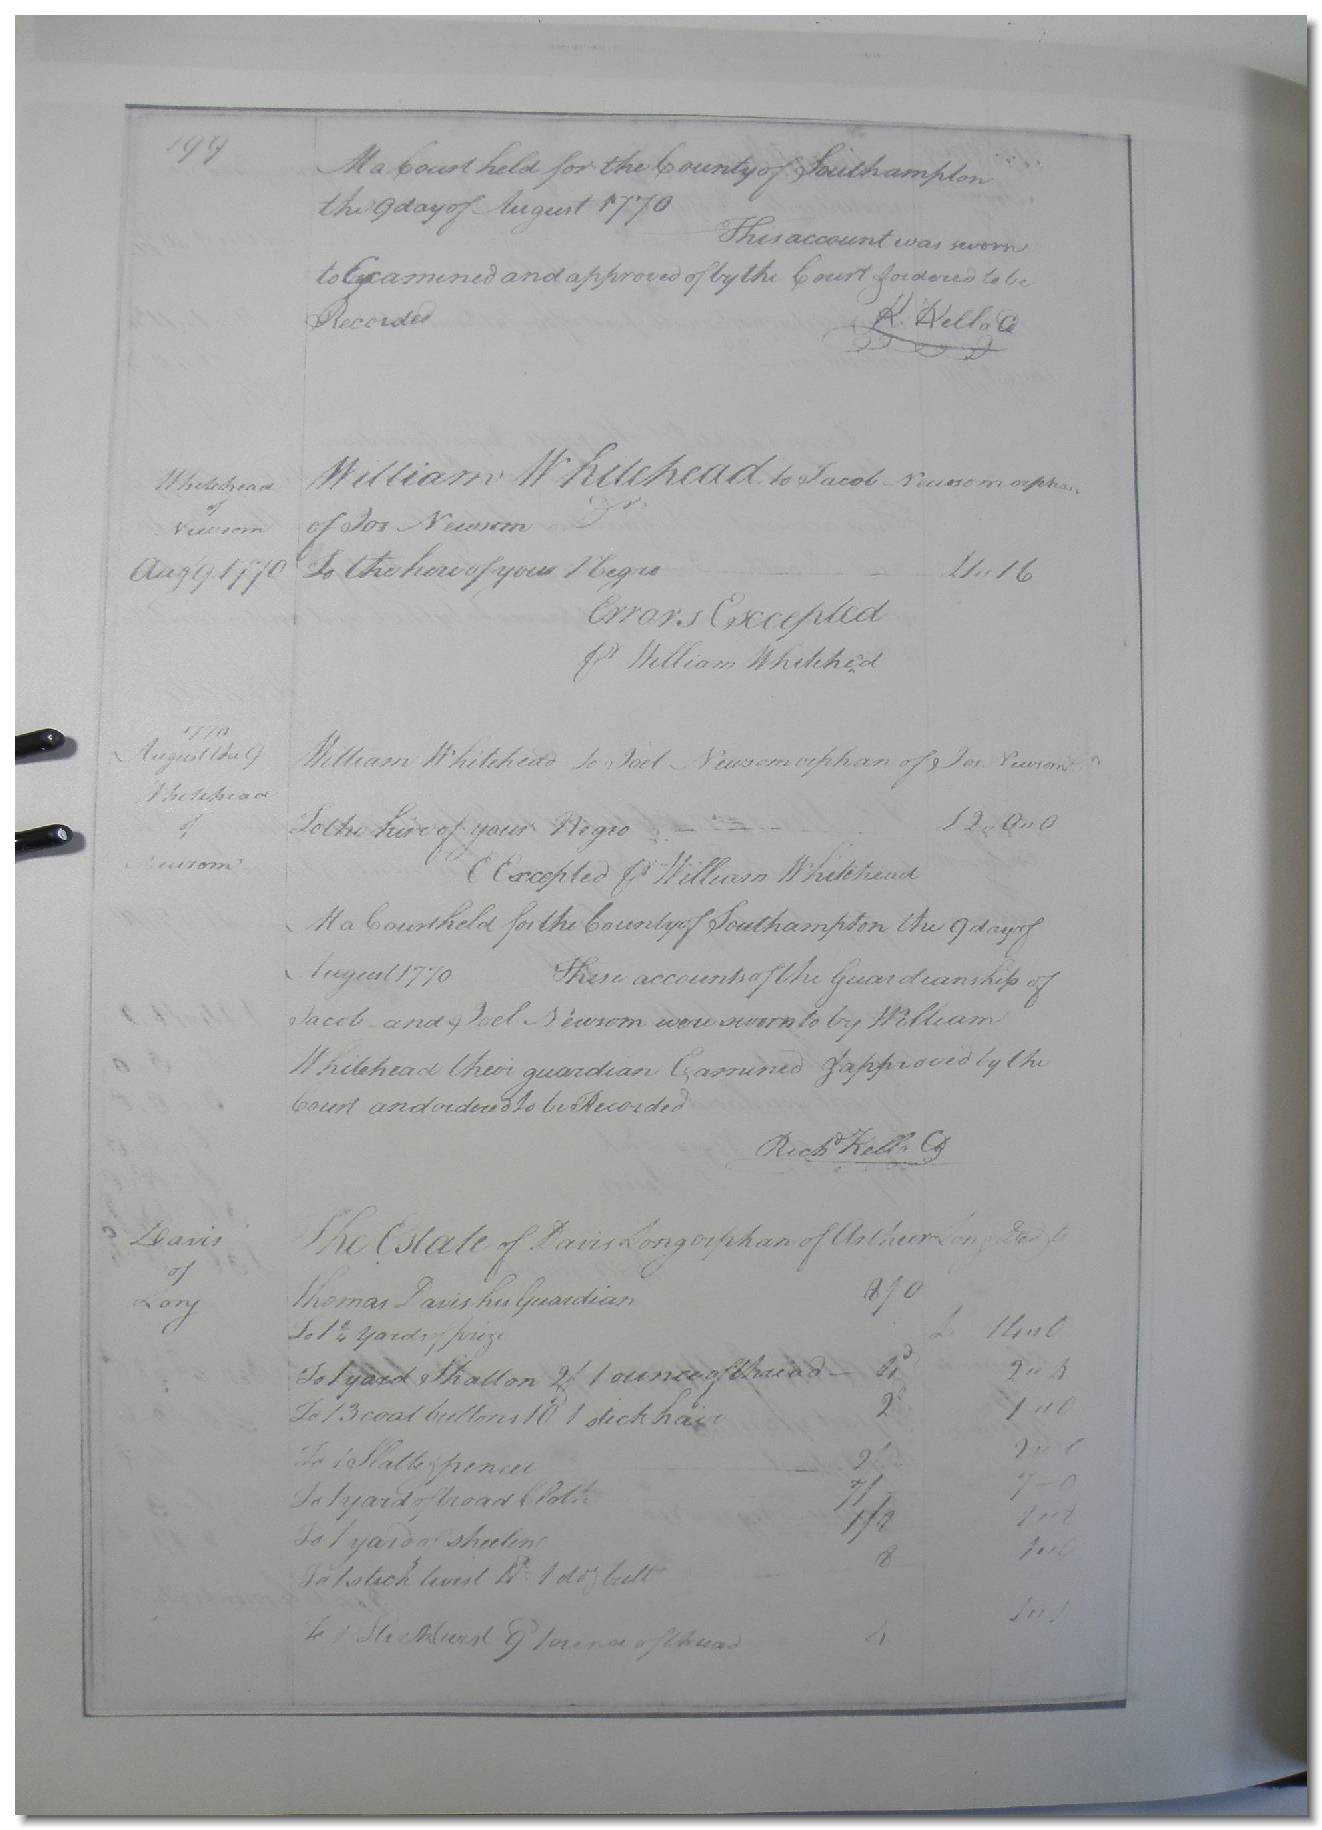 199
At a Court held for the County of Southampton
the 9 day of August 1770
This account was sworn
to Examined and approved of by the Court & ordered to be
Recorded
R. Kello Cl
Whitehead
of
Newsom
William Whitehead to Jacob Newsom orphan
of Jos Newsom Dr
Aug 9. 1770 To the hire of your Negro 4 " 16
Errors Excepted
pr William Whitehead
1770
August the 9
Whitehead
of
Newsom
William Whitehead to Joel Newsom orphan of Jos. Newsom
To the hire of your Negro £2 " 0 " 0
E Excepted pr William Whitehead
At a Court held for the County of Southampton the 9 day of
August 1770 These accounts of the Guardianship of
Jacob and Joel Newsom were sworn to by William
Whitehead their guardian Examined & approved by the
Court and ordered to be Recorded
Richd Kello Cl
Davis
of
Long
The Estate of Davis Long orphan of Arthur Long Dec to
Thomas Davis his Guardian
To yards prize 14 " 0
To 1 yard Shallon 2/ 1 ounce of thread 4d
To 13 coat buttons 10d 1 stick hair 2
To 1 Slatte & pencel 2
To 1 yard of broad Cloth 7/ 7 - 0
To 1 yard of sheeting
To 1 stick twist 1 doz butt 8
To 1 Stick twist 1 ounce of thread 4